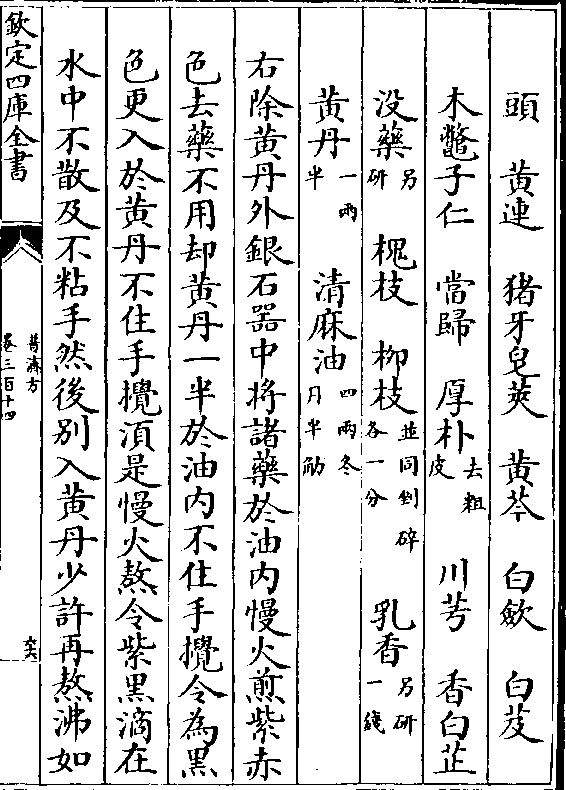 頭 黄連 猪牙皂莢 黄芩 白歛 白芨
木鼈子仁 當歸 厚朴去粗皮 川芎 香白芷
没藥另研 槐枝 柳枝並同剉碎各一分 乳香另研一錢
黄丹一兩半 清麻油四兩冬月半觔
右除黄丹外銀石器中将諸藥於油内慢火煎紫赤
色去藥不用却黄丹一半於油内不住手攪令為黒
色更入於黄丹不住手攪湏是慢火熬令紫黒滴在
水中不散及不粘手然後别入黄丹少許再熬沸如
欽定四庫全書
普濟方
卷三百十四